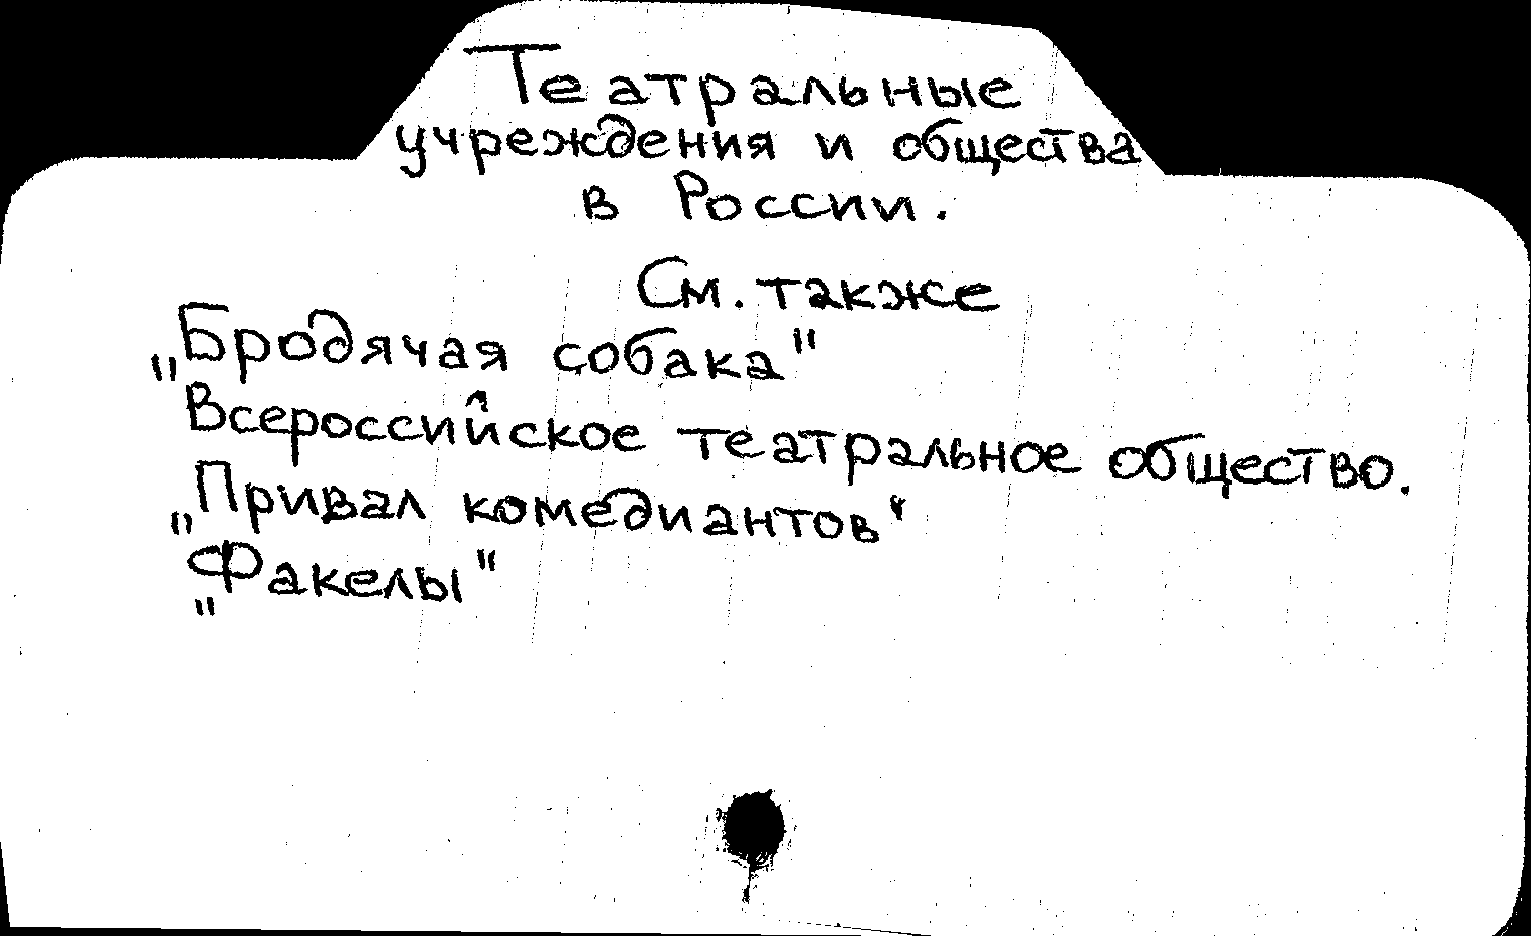 Театральные
учреждения и общества
в России.
См. также
„Бродячая собака"
Всероссийское театральное общество.
„Привал комедиантов"
„Факелы"